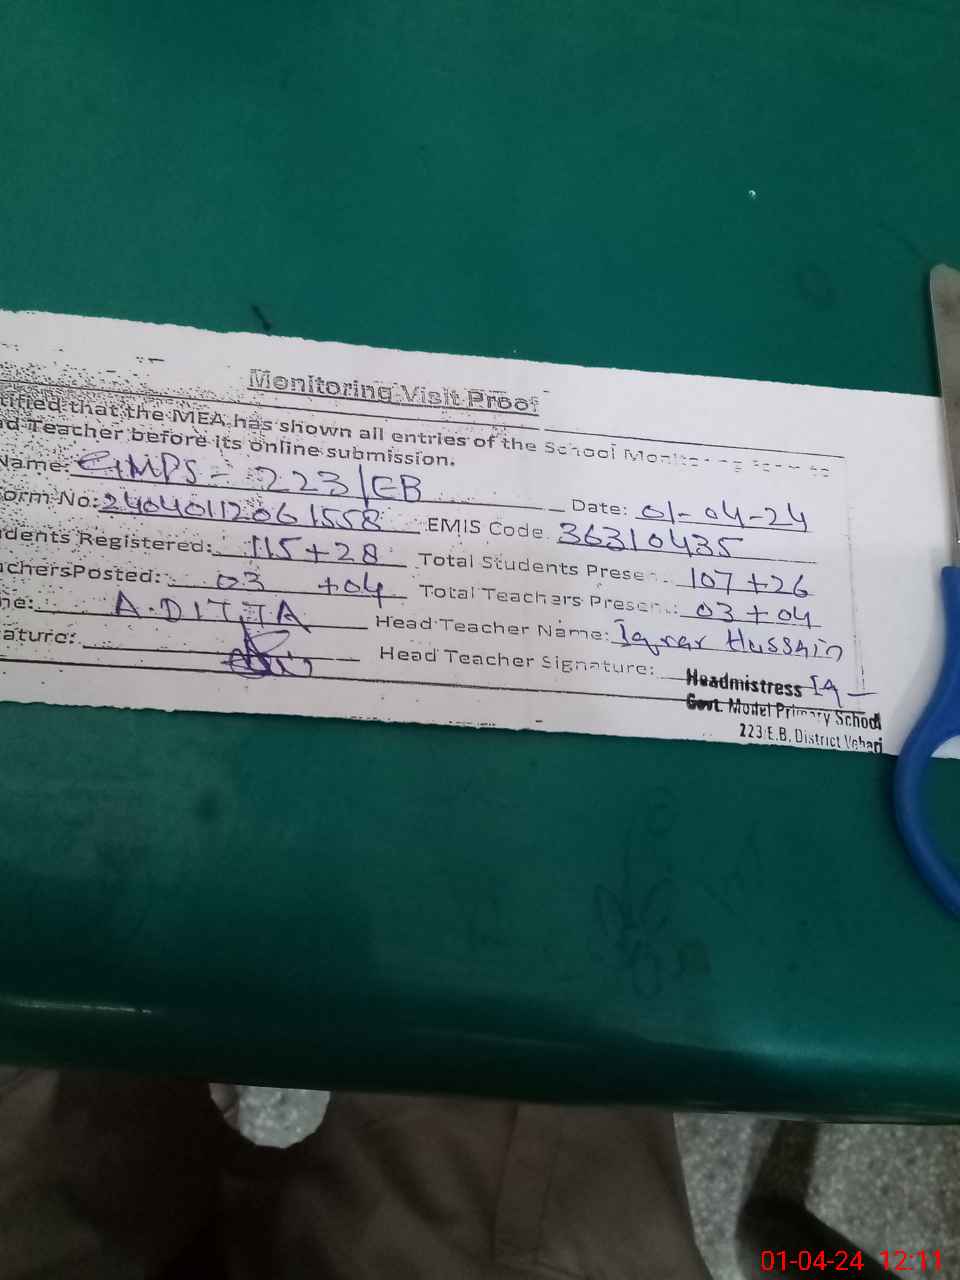 Monitoring Visit Proof
tified that the MEA has shown all entries of the School Monitoring Form to
ad Teacher before its online submission.
Name: GMPS - 223/EB Date: 01-04-24
orm No: 24040112061558 EMIS Code 36310435
dents Registered: 115+28 Total Students Presen.: 107+26
achersPosted: 03 +04 Total Teachers Presen.: 03+04
me: A.DITTA Head Teacher Name: Iqrar Hussain
ature: Head Teacher Signature: Iq
Headmistress
Govt. Model Primary School
223/E.B. District Vehari
01-04-24 12:11